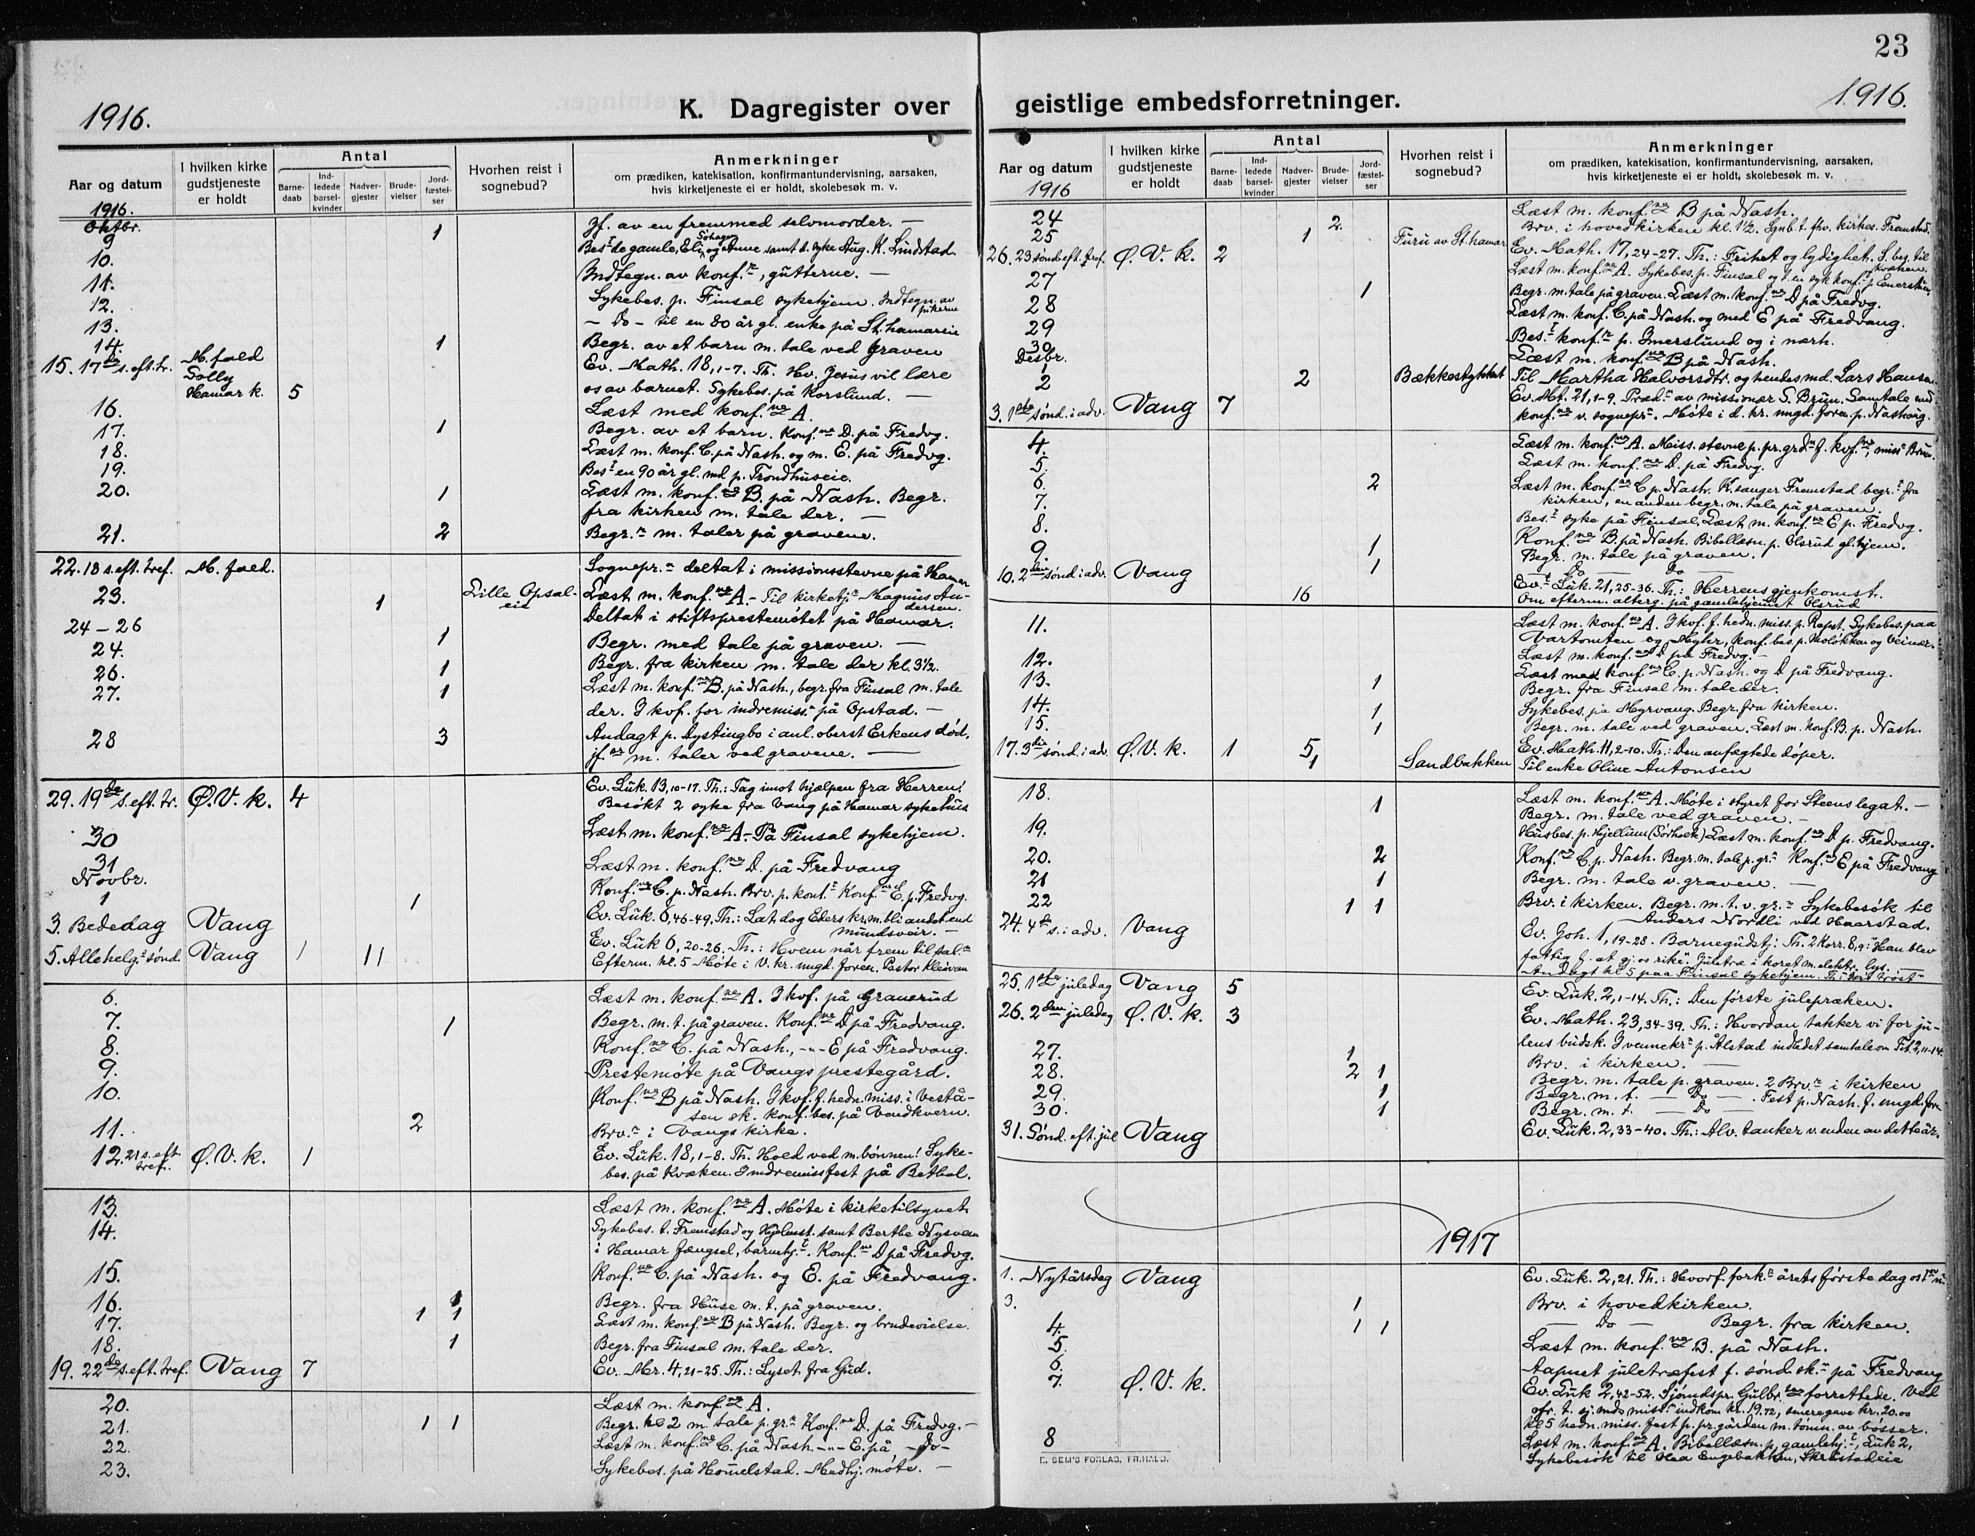 23
1916.
K. Dagregister over geistlige embedsforretninger.
1916.
Aar og datum
I hvilken kirke gudstjeneste er holdt
Antal
Barnedaab
Indledede barselkvinder
Nadvergjester
Brudevielser
Jordfæstelser
Hvorhen reist i sognebud?
Anmerkninger
om prædiken, katekisation, konfirmantundervisning, aarsaken,
hvis kirketjeneste ei er holdt, skolebesøk m. v.
1916.
Oktbr.
9 1 Jf. av en fremmed selvmorder. —
10. Bes.t de gamle, Eli og Anne samt d. syke Aug. K. Lundstad
11. Indtegn. av konf., gutterne. —
12. Sykebes. p. Finsal sykehjem. Indtegn. av pikerne
13. — Do — til en 80 år gl. enke på St. hamareie
14. 1 Begr. av et barn m. tale ved graven
15. 17de s. eft. tr. M. fald Ev. Math. 18, 1-7. Th. Hv. Jesus vil lære
Hamar k. 5 os av barnet. Sykebes. på Korslund. —
16. Læst med konf.ne A.
17. 1 Begr. av et barn. Konf.ne D. på Fredvg.
18. Læst m. konf. C. på Nash. og m. E. på Fredvg.
19. Bes.t en 90 år gl. md p. Trondhuseie.
20. 1 Læst m. konf.ne B. på Nash. Begr.
fra kirken m. tale der. —
21. 2 Begr. m. taler på gravene.
22. 18 s. eft. tref. M. fald. Sognepr. deltat i missionsstevne på Hamar
23. 1 Lille Opsaleie Læst m. konf.ne A. - Til kirketj. Magnus Andersen.
24-26 Deltat i stiftsprestemøtet på Hamar.
24. 1 Begr. med tale på graven. —
26. 1 Begr. fra kirken m. tale der kl. 3½.
27. 1 Læst m. konf.ne B. på Nash., begr. fra Finsal m. tale
der. I kvf. for indremiss. på Opstad. —
28 3 Andagt p. Dystingbo i anl. oberst Erkens død,
jf. m. taler ved gravene. —
29. 19de s. eft. tr. Ø. V. k. 4 Ev. Luk. 13, 10-17. Th.: Tag imot hjælpen fra Herren!
Besøkt 2 syke fra Vang på Hamar sykehus
30 Læst m. konf.ne A. - På Finsal sykehjem.
31 Læst m. konf.ne D. på Fredvang
Novbr.
1 1 Konf.ne C. p. Nash. Brv. p. kont. Konf.ne E. p. Fredvg.
3. Bededag Vang Ev. Luk. 6, 46-49. Th.: Lat dog Eders kr. m. bli andet end
mundsveir. —
5. Allehelg. sønd. Vang 1 11 Ev. Luk 6, 20-26. Th.: Hvem når frem til sal.
Efterm. kl. 5 Møte i V. kr. ungd. foren. Pastor Kleivan
6. Læst m. konf.ne A. I kvf. på Granerud
7. 1 Begr. m. t. på graven. Konf.ne D på Fredvang.
8. Konf.ne C. på Nash., -"- E på Fredvang.
9. Prestemøte på Vangs prestegård.
10. Konf.ne B på Nash. I kvf. f. hedn. miss. i Veståsen
sk. konf. bes. på Vendkvern.
11. 2 Brv. i Vangs kirke.
12. 21 s. eft. tref. Ø. V. k. 1 Ev. Luk. 18, 1-8. Th. Hold ved m. bønnen! Sykebes.
på Kvæken. Indremissfest på Bethel.
13. Læst m. konf.ne A. Møte i kirketilsynet
14. Sykebes. t. Fremstad og Hjelmst. samt Berthe Nysveen
i Hamar fængsel, barmhj. Konf.ne D på Fredvg.
15. Konf.ne C. på Nash. og E. på Fredvang.
16. 1 Begr. fra Huse m. t. på graven.
17. 1 1 Læst m. konf.ne B på Nash. Begr. og brudevielse.
18. 1 Begr. fra Finsal m. tale der.
19. 22de s. eft. tref. Vang 7 Ev. Mr. 4, 21-25. Th.: Lyset fra Gud.
20. Læst m. konf.ne A.
21. 1 1 Begr. kl 2 m. tale p. gr. Konf.ne D. på Fredvg. -
22. Læst m. konf.ne C. på Nash -"- E. på — Do —
23. Sykebes. på Hommelstad. Medhj. møte. —
Aar og datum
1916
I hvilken kirke gudstjeneste er holdt
Antal
Barnedaab
Indledede barselkvinder
Nadvergjester
Brudevielser
Jordfæstelser
Hvorhen reist i sognebud?
Anmerkninger
om prædiken, katekisation, konfirmantundervisning, aarsaken,
hvis kirketjeneste ei er holdt, skolebesøk m. v.
24 Læst m. konf.ne B på Nash.
25 1 2 Furu av St. hamar Brv. i hovedkirken kl. 1½. Sgnb. t. fhv. kirkes. Fremstad.
26. 23 sønd. eft. tref. Ø. V. k. 2 Ev. Math. 17, 24-27. Th.: Frihet og lydighet. S. beg. til Kvæken.
27 Læst m. konf.ne A. Sykebes. p. Finsal og t. en syk konf. p.
28 1 Begr. m. tale på graven. Læst m. konf.ne D på Fredvg.
29 Læst m. konf. C. på Nash. og med E på Fredvang.
30 Bes.t konf. p. Imerslund og i nærh.
Desbr.
1 Læst m. konf.ne B på Nash.
2 2 Bækkestykket Til Martha Halvorsdtr. og hendes md. Lars Hansen
3. 1ste sønd. i adv. Vang 7 Ev. Mt. 21, 1-9. Præd. av missionær S. Brun. Samtale med
konf.ne v. sognepr. Møte i d. kr. ungd. foren. p. Nashaug.
4. Læst m. konf.ne A. Miss. stevne p. pr. grd. f. kvf., miss. Brun.
5. Læst m. konf.ne D. på Fredvg.
6. 2 Læst m. konf.ne C p. Nash. K. sanger Fremstad begr. fra
7. kirken, en anden begr. m. tale på graven.
8. Bes.t syke på Finsal. Læst m. konf.ne E p. Fredvg.
9. 1 Konf.ne B. på Nash. Bibellæsn. p. Olsrud gl. hjem.
Begr. m. tale på graven.
1 — Do — Do —
10. 2den sønd. i adv. Vang 16 Ev. Luk. 21, 25-36. Th.: Herrens gjenkomst.
Om efterm. alterg. på gamlehjemmet Olsrud
11. Læst m. konf.ne A. I kvf. f. hedn. miss. p. Sykebes. paa
Vartomten og Myhr, konf. bes. p.
12. Læst m. konf.ne D på Fredvg. —
13. 1 Læst med konf.ne C. p. Nash. og D på Fredvang.
Begr. fra Finsal m. tale der.
14. 1 Sykebes. på Myrvang. Begr. fra kirken.
15. 1 Begr. m. tale ved graven. Læst m. konf. B. p. Nash.
17. 3die sønd. i adv. Ø. V. k. 1 5 Ev. Math. 11, 2-10. Th.: Den anfægtede døper.
1 Sandbakken Til enke Oline Antonsen
18. 1 Læst m. konf.ne A. Møte i styret for Steens legat. —
Begr. m. tale ved graven. —
19. Husbes. p. Hjellum (Sørhoek) Læst m. konf.ne D p. Fredvang.
20. 2 Konf.ne C p. Nash. Begr. m. tale p. gr. Konf.ne E på Fredvang
21 1 Begr. m. tale v. graven. —
22 1 1 Brv. i kirken. Begr. m. t. v. gr. Sykebesøk til
Anders Nordli ved Haarstad.
24. 4de s. i adv. Vang Ev. Joh. 1, 19-28. Barnegudstj: Th. 2 Korr. 8, 9: Han blev
fattig f. at gj. os rike. Juletræ i koret m. elektr. lys.
Andagt kl. 5 paa Finsal sykehjem.
25. 1ste juledag Vang 5 Ev. Luk. 2, 1-14. Th.: Den første julepræken.
26. 2den juledag Ø. V. k. 3 Ev. Math. 23, 34-39. Th.: Hvordan takker vi for julens
budsk. I vennekr. p. Ålstad indledet samtale om Tit. 2, 11-14.
27. 1 Brv. i kirken. —
28. 2 1 Begr. m. tale p. graven. 2 Brv. i kirken
29. 1 Begr. m. t. — Do — . Fest p. Nash. f. ungd. for.
30. 1 Begr. m. t. — Do —
31. Sønd. eft. jul Vang Ev. Luk. 2, 33-40. Th.: Alv. tanker v. enden av dette år.
1917
1. Nytårsdag Vang Ev. Luk. 2, 21. Th.: Hvorf. fork. årets første dag os
3. 1 Brv. i hovedkirken.
4. 1 1 — Do — Begr. fra kirken.
5. Læst m. konf.ne B. på Nash.
6. Aapnet juletræfest f. sønd. sk. på Fredvang
7. Ø. V. k. Ev. Luk 2, 42-52. Sjømdspr. Gulbr. forrettede. Ved
ofr. t. sj. mds miss. indkom kr. 19.72, senere gave kr. 20.00
kl 5 hedn. miss. fest p. pr. gården m. tømn. av bøsser.
8 Læst m. konf.ne A. Bibellæsn. p. gamlehj., Luk 2,
Sykebesøk til Engebakken, Skredstadeie
E. SEM'S FORLAG, FR.HALD.